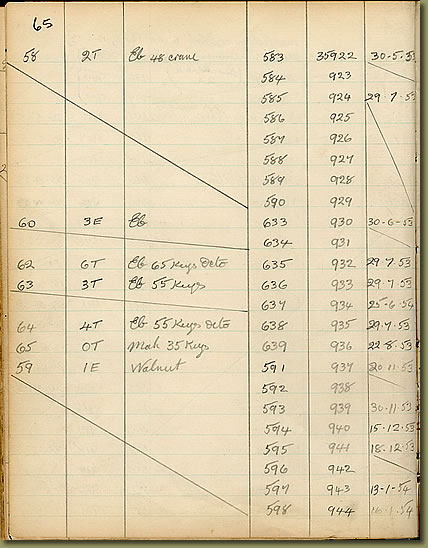 65
58 2T Eb 48 crane 583 35922 30-5-53
584 923
585 924 29-7-53
586 925
587 926
588 927
589 928
590 929
60 3E Eb 633 930 30-6-53
634 931
62 6T Eb 65 Keys Octo 635 932 29.7.53
63 3T Eb 55 Keys 636 933 29.7.53
637 934 25-6-54
64 4T Eb 55 Keys Octo 638 935 29.7.53
65 0T Mah 35 Keys 639 936 22.8.53
59 1E Walnut 591 937 20.11.53
592 938
593 939 30-11-53
594 940 15-12-53
595 941 18.12.53
596 942
597 943 13-1-54
598 944 16-1-54